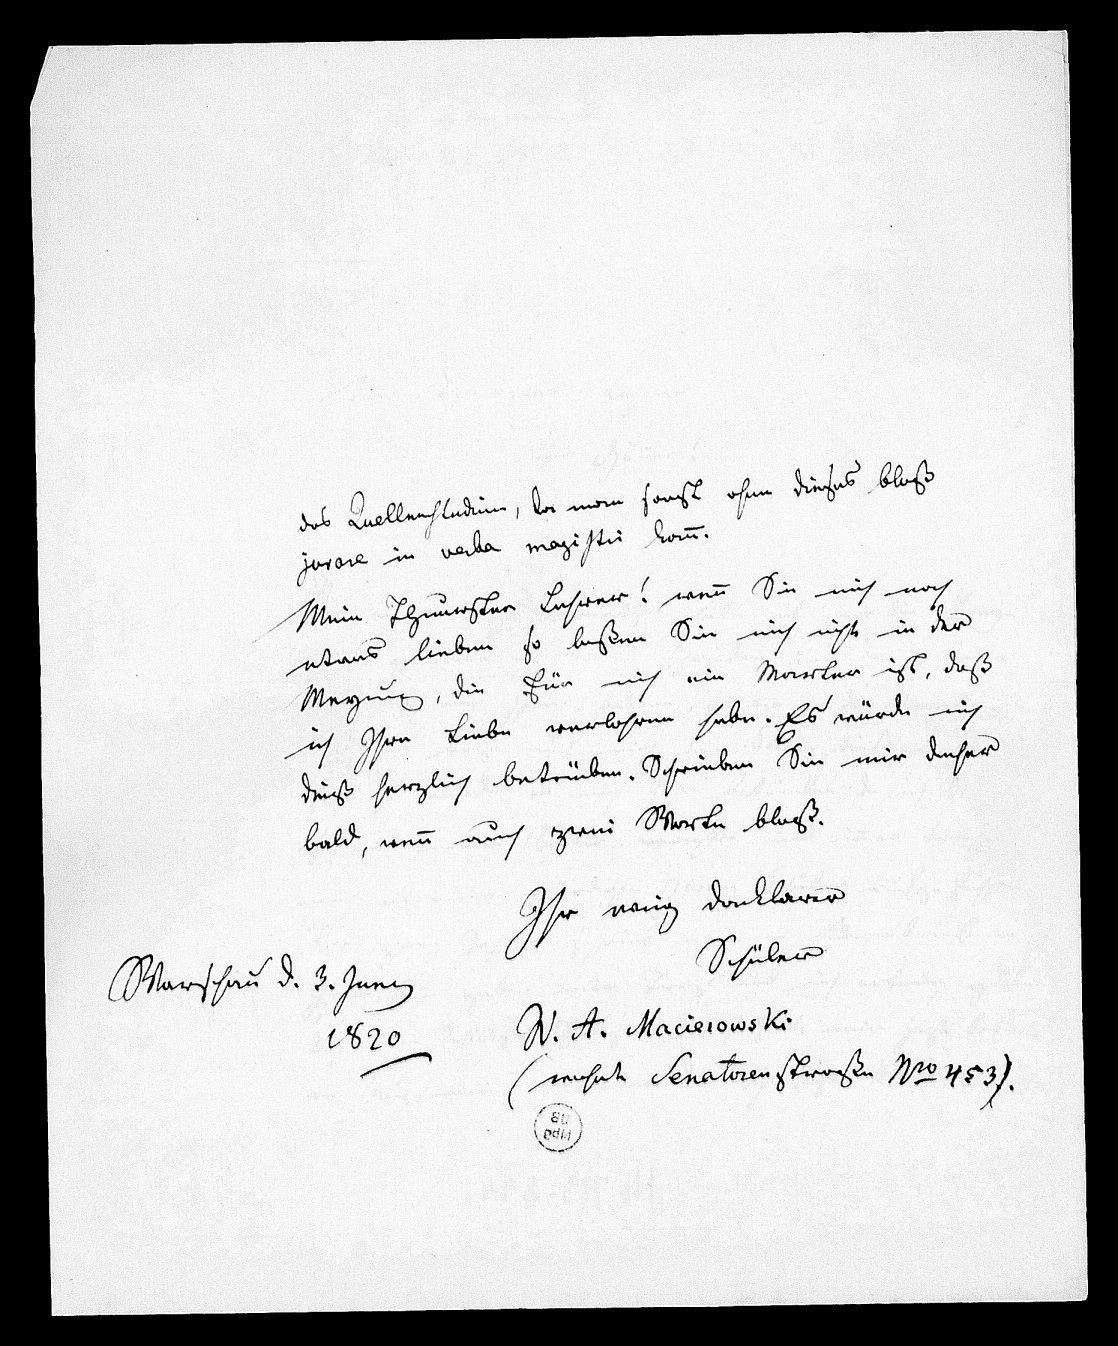 das Quellenstudium, da man sonst ohne dieses bloß
jurare in verba magistri kom̅.
Mein Theuerster Lehrer! wen̅ Sie mich noch
etwas lieben so laßen Sie mich nicht in der
Meynung, die für mich ein Marter ist, daß
ich Ihre Liebe verlohren habe. Es würde mich
dieß herzlich betrüben. Schrieben Sie mir daher
bald, wen̅ auch zwei Worte bloß.
Ihr ewig dankbarer
Schüler
Warschau d. 3. Juny
1820
W. A. Macieiowski
(wohnt Senatorenstraße Nro 453).